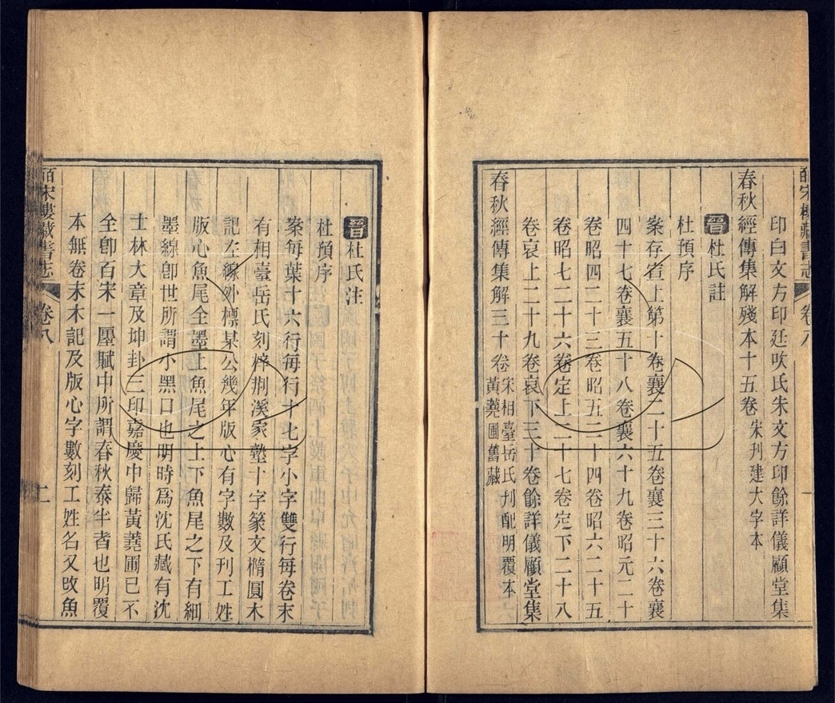 皕宋樓藏書志 卷八 一
印白文方印廷吹氏朱文方印餘詳儀顧堂集
春秋經傳集解殘本十五卷 宋刋建大字本
晉杜氏註
杜預序
案存宣上第十卷襄二十五卷襄三十六卷襄
四十七卷襄五十八卷襄六十九卷昭元二十
卷昭四二十三卷昭五二十四卷昭六二十五
卷昭七二十六卷定上二十七卷定下二十八
卷哀上二十九卷哀下三十卷餘詳儀顧堂集
春秋經傳集解三十卷 宋相臺岳氏刋配明覆本
黃蕘圃舊藏
晉杜氏注
杜預序
案每葉十六行每行十七字小字雙行每卷末
有相臺岳氏刻梓荆溪家塾十字篆文橢圓木
記左線外標某公幾年版心有字數及刋工姓
版心魚尾全墨上魚尾之上下魚尾之下有細
墨線卽世所謂小黑口也明時爲沈氏藏有沈
士林大章及坤卦三印嘉慶中歸黃蕘圃已不
全卽百宋一廛賦中所謂春秋泰半者也明覆
本無卷末木記及版心字數刻工姓名又改魚
皕宋樓藏書志 卷八 二